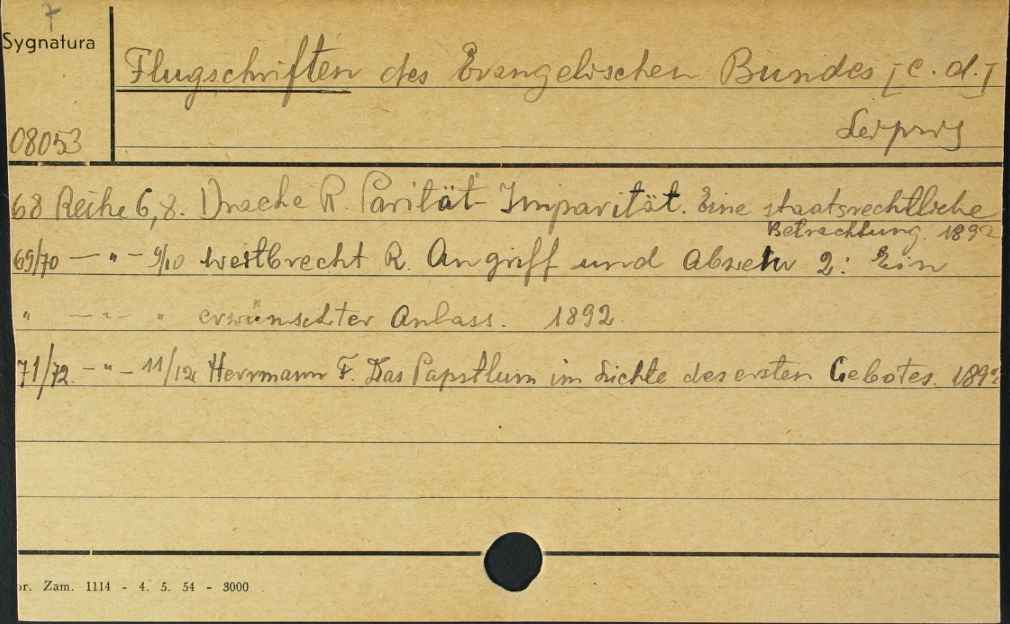 7
Sygnatura
Flugschriften des Evangelischen Bundes [c. d.]
08053
Leipzig
68 Reihe 6,8. Drache R. Parität - Imparität. Eine staatsrechtliche
Betrachtung. 1892
69/70 — " — 9/10 Weitbrecht R. Angriff und Abwehr 2: Ein
" — " — " erwünschter Anlass. 1892.
71/72. — " — 11/12 Herrmann F. Das Papsttum im Lichte des ersten Gebotes. 1892
r. Zam. 1114 - 4. 5. 54 - 3000